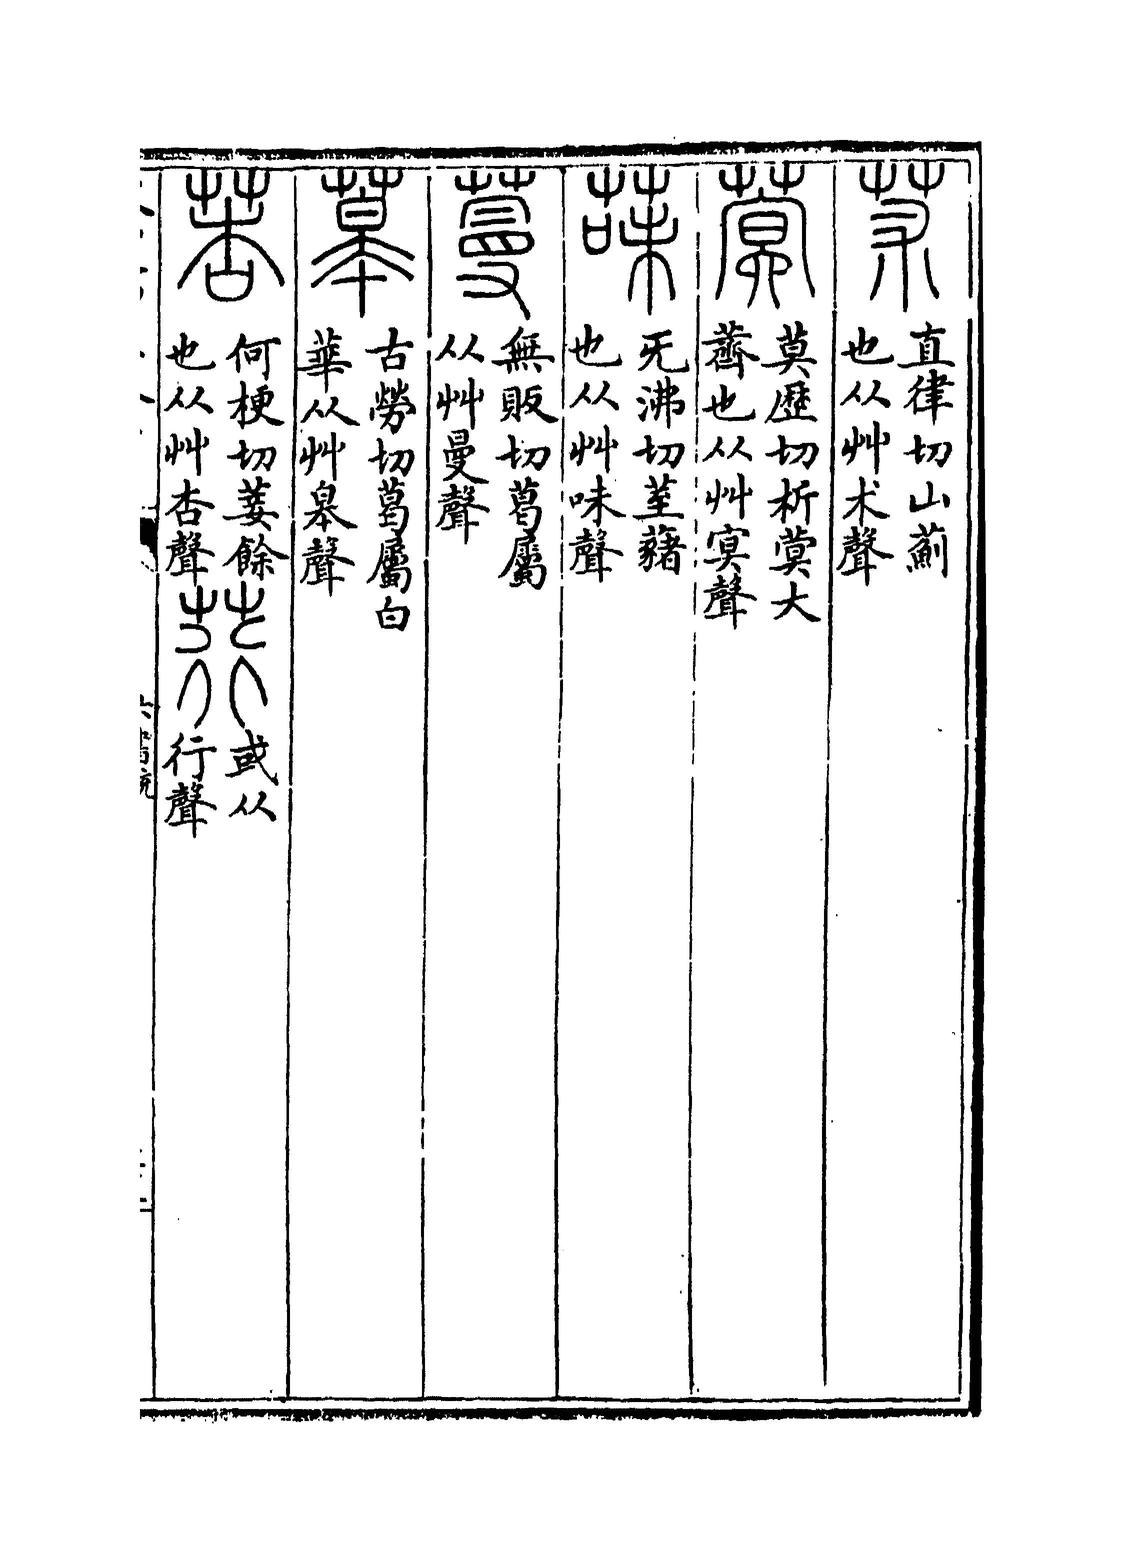 荗
直律切山薊
也从艸术聲
蓂
莫歷切析蓂大
薺也从艸冥聲
菋
旡沸切荎藸
也从艸味聲
蔓
無販切葛屬
从艸曼聲
䓘
古勞切葛屬白
華从艸皋聲
莕
何梗切菨餘
也从艸杏聲
荇
或从
行聲